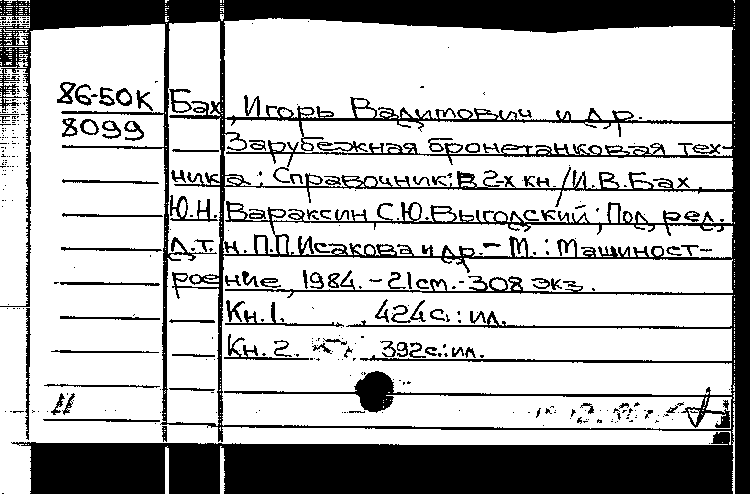 86-50К Бах, Игорь Вадимович и др.
8099
Зарубежная бронетанковая тех-
ника: Справочник: В 2-х кн./И.В.Бах,
Ю.Н. Вараксин, С.Ю.Выгодский; Под ред.
д.т.н. П.П.Исакова и др.- М.: Машиност-
роение, 1984. - 21см.- 308 экз.
Кн.1. , 424с.: ил.
Кн. 2. , 392с.: ил.